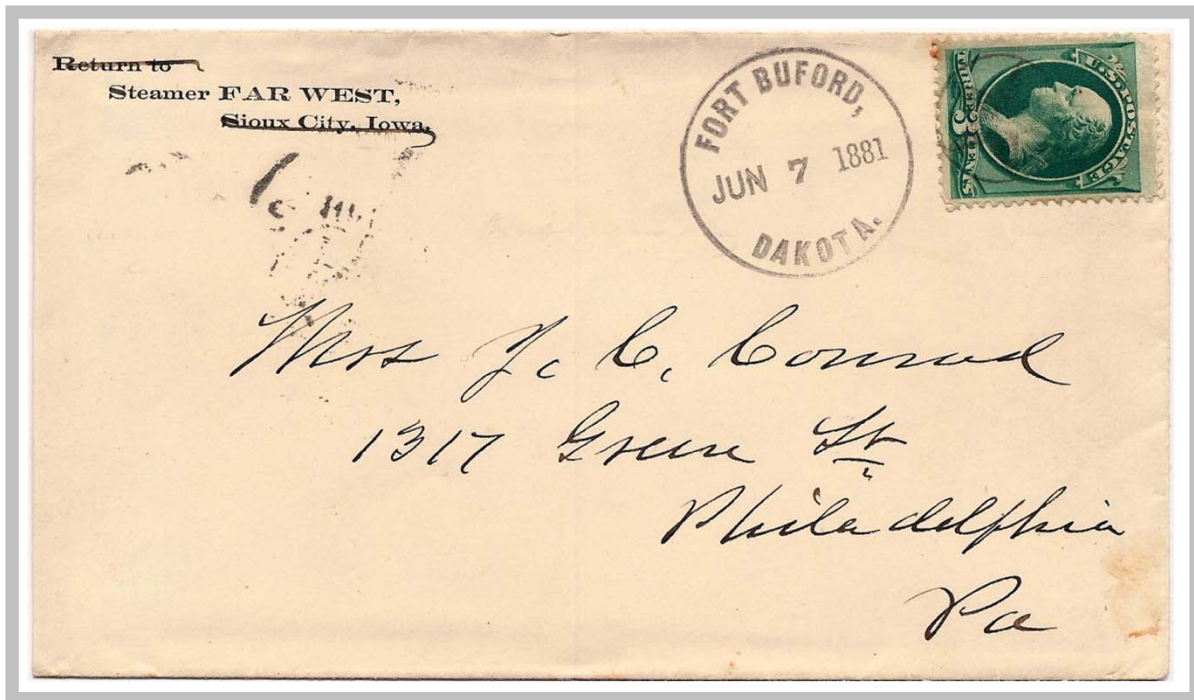 Return to
Steamer FAR WEST,
Sioux City, Iowa.
FORT BUFORD,
JUN 7 1881
DAKOTA.
U.S. POSTAGE
THREE 3 CENTS
Mrs J. C. Conrad
1317 Green St
Philadelphia
Pa